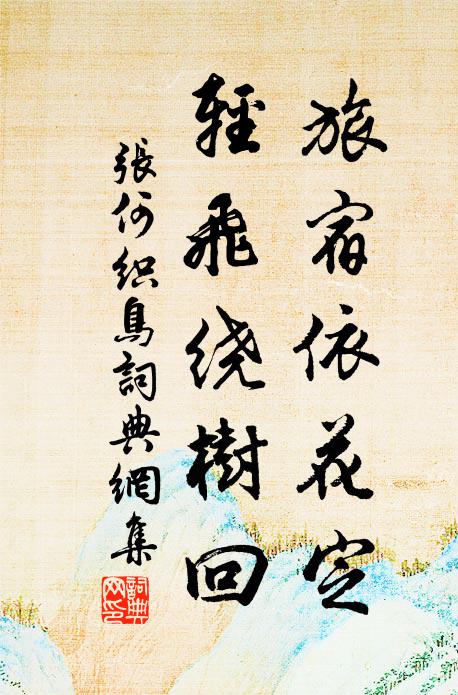 旅宿依花定
輕飛绕樹回
張何织鳥詞典網集
詞典